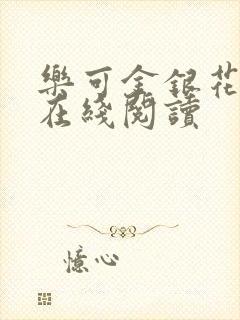 樂可金銀花
在綫閱讀
憶心